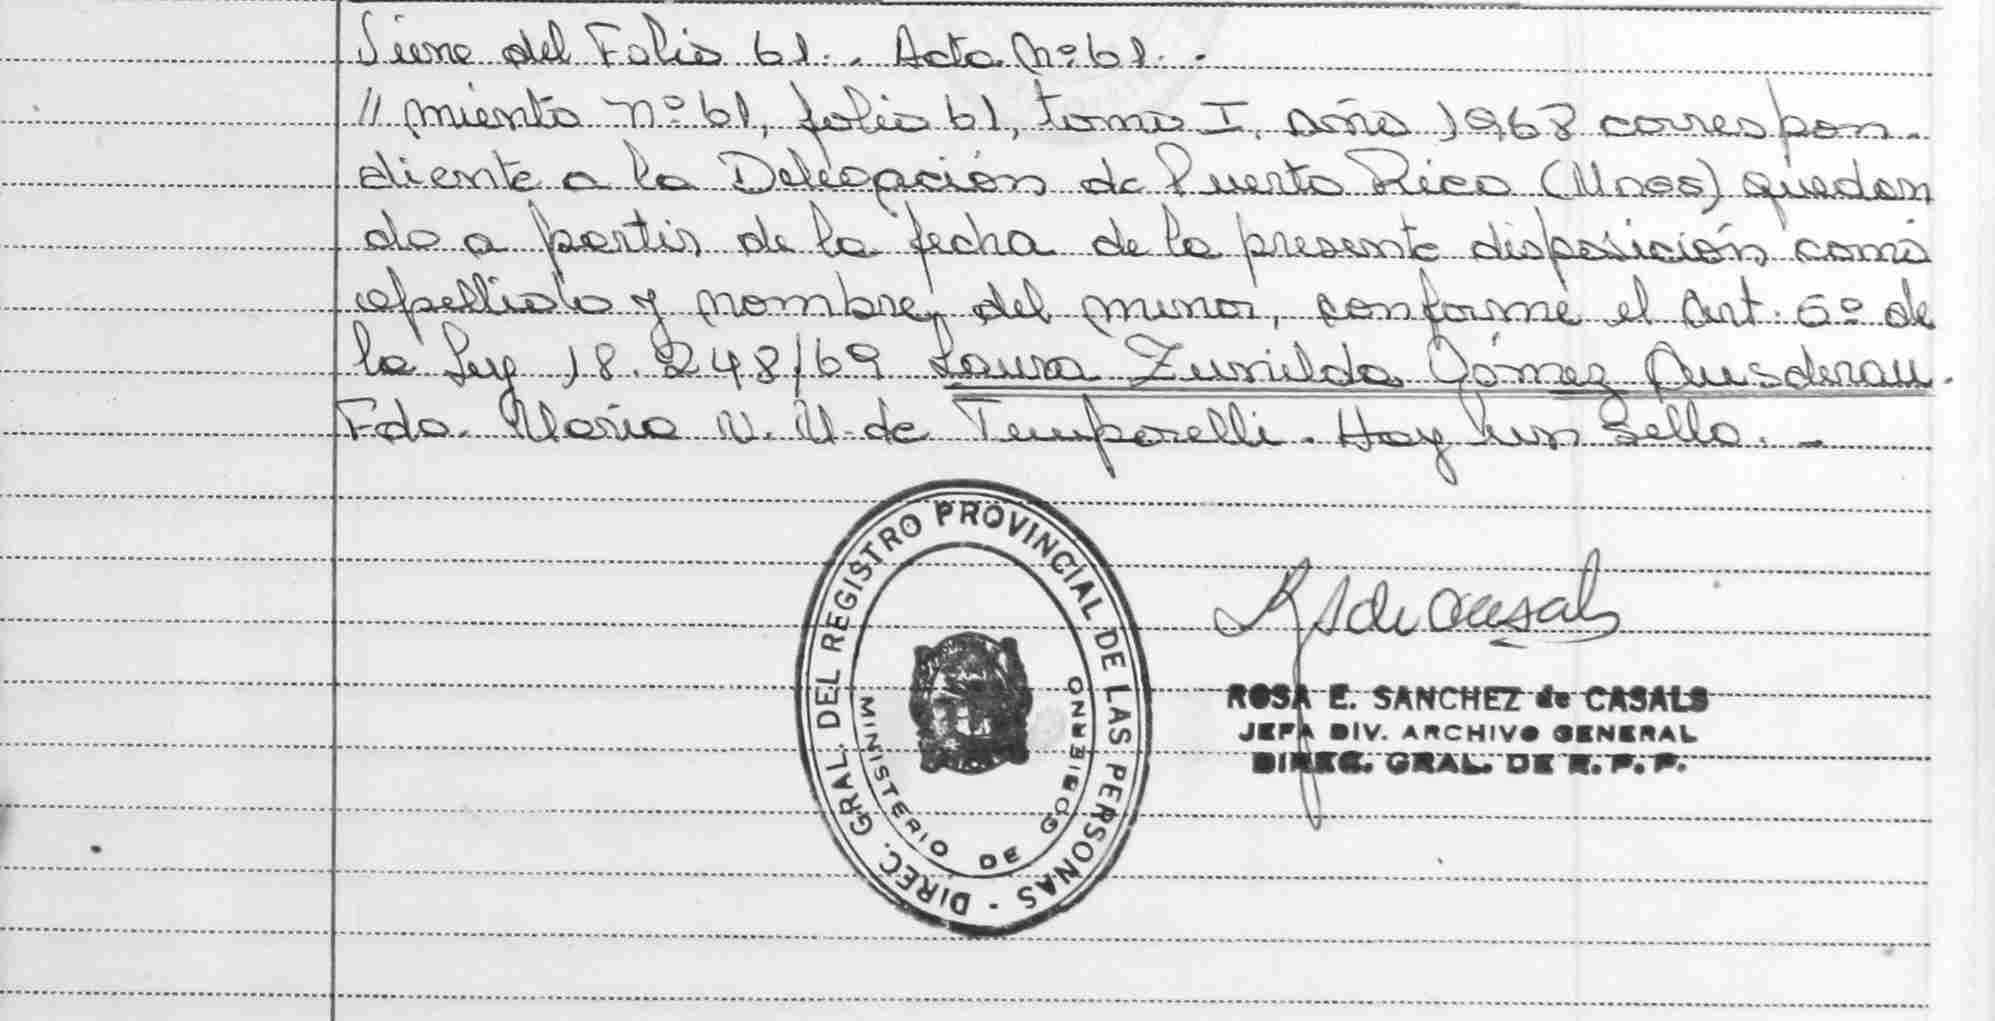 Viene del Folio 61.. Acta Nº 61. -
// miento nº 61, folio 61, tomo I, año 1968 correspon-
diente a la Delegación de Puerto Rico (Mnes) quedan
do a partir de la fecha de la presente disposición como
apellido y nombre, del menor, conforme el Art. 6º de
la Ley 18.248/69 Laura Zunilda Gómez Ausderau.
Fdo. María V. M. de Temporelli. Hay un sello. -
DIREC. GRAL. DEL REGISTRO PROVINCIAL DE LAS PERSONAS -
MINISTERIO DE GOBIERNO
R S de Casals
ROSA E. SANCHEZ de CASALS
JEFA DIV. ARCHIVO GENERAL
DIREC. GRAL. DE R. P. P.